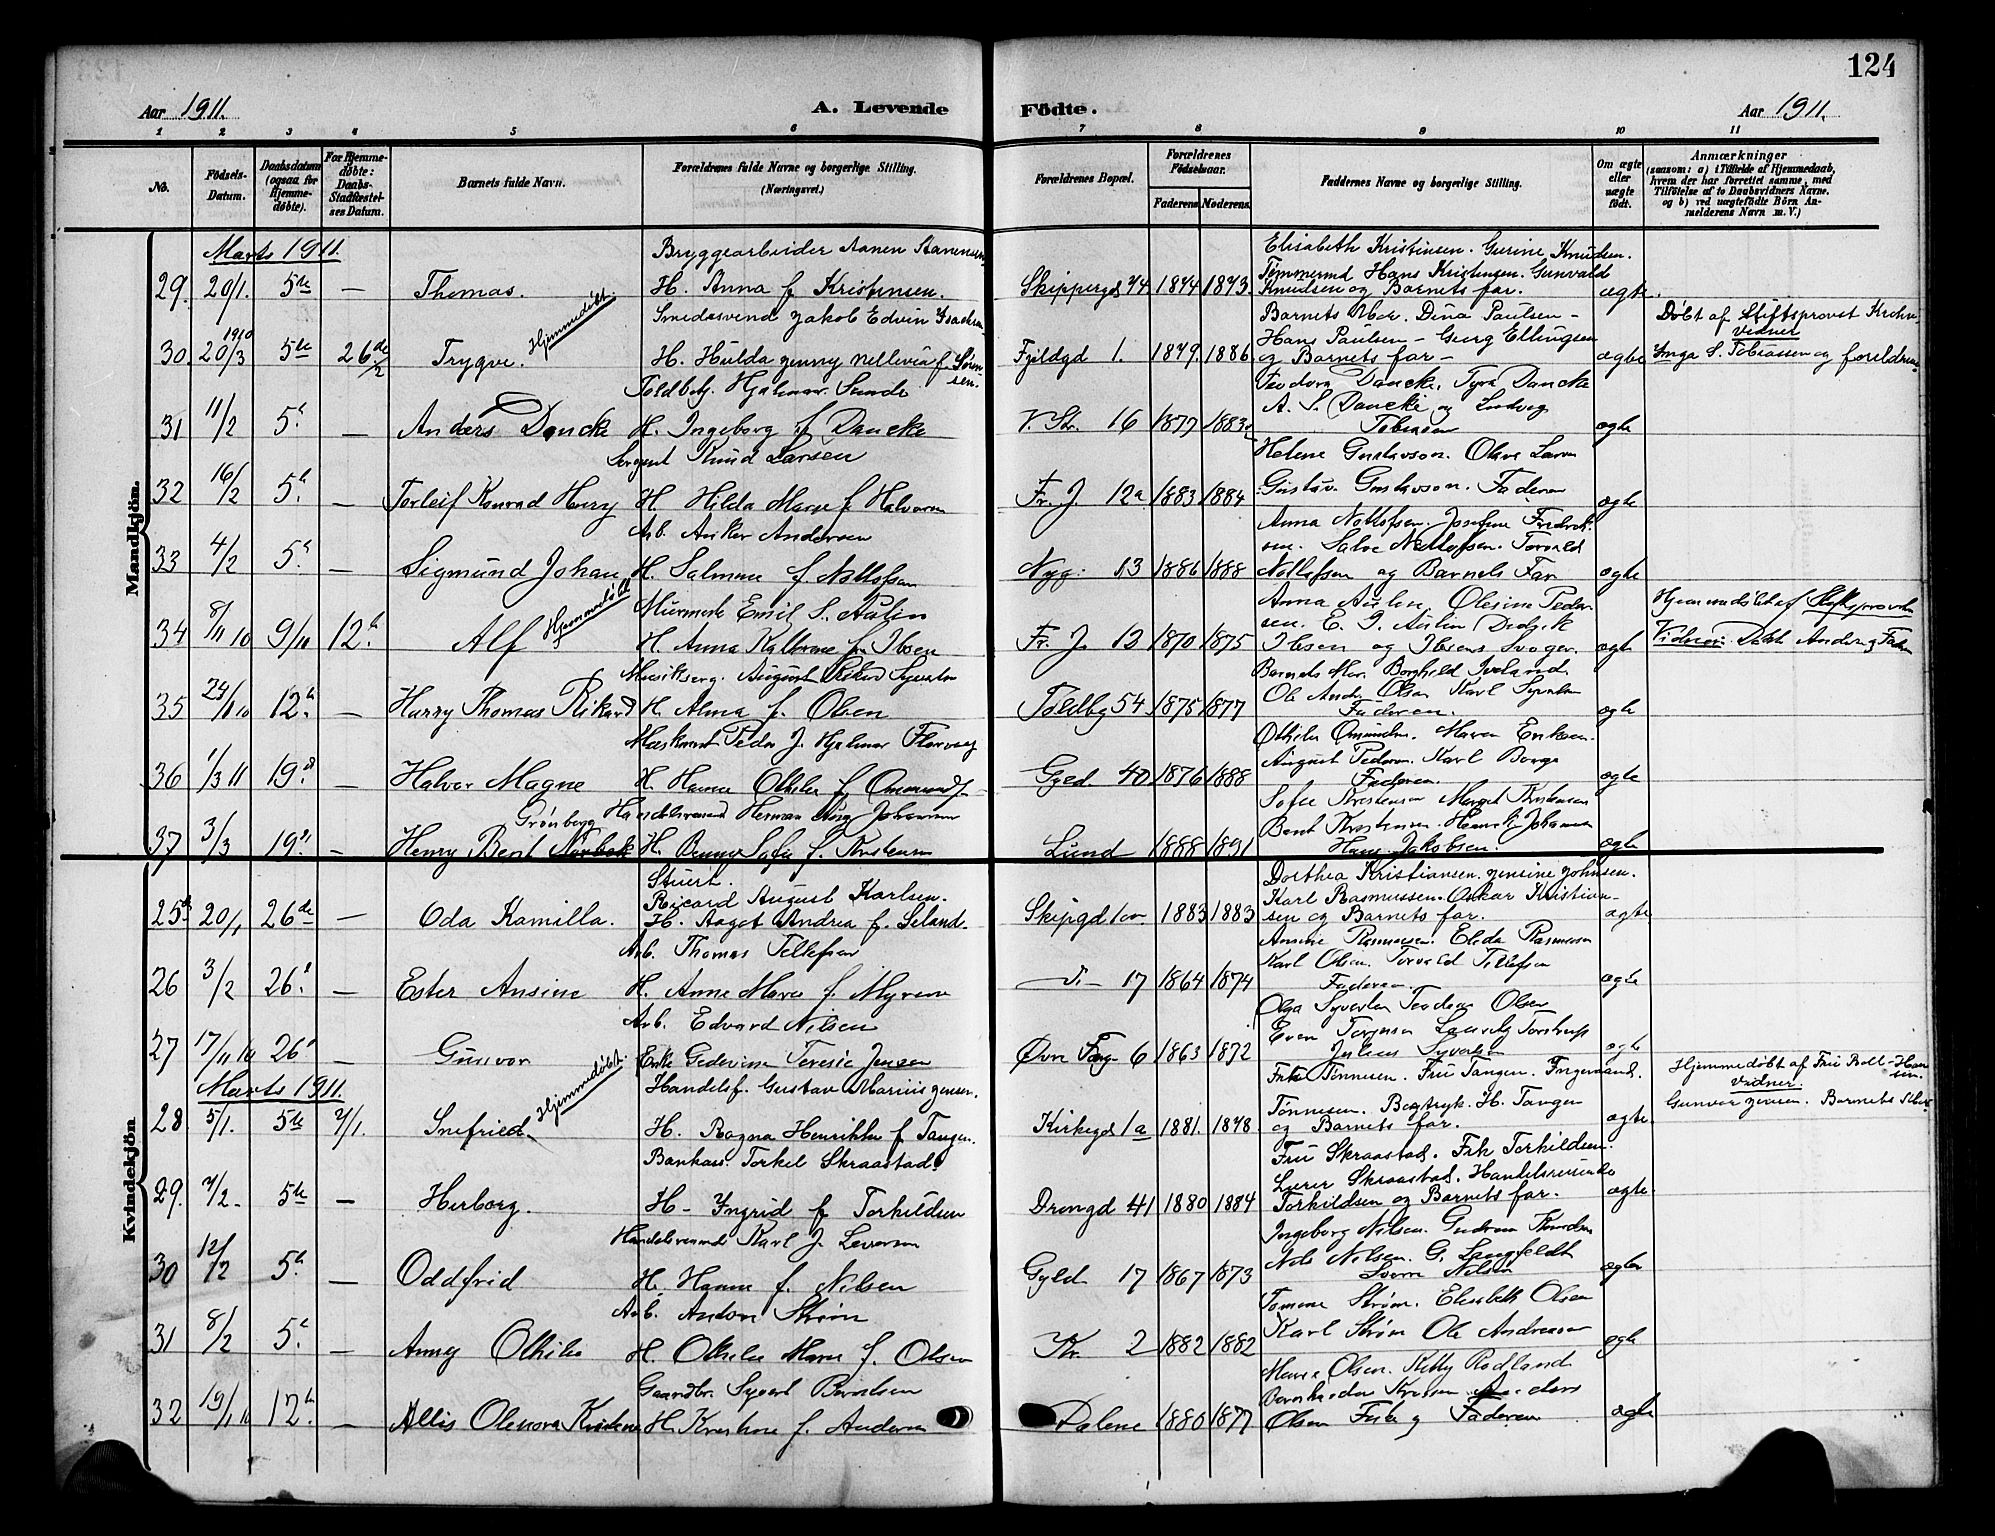 124
Aar 1911. A. Levende Födte. Aar 1911.
1 2 3 4 5 6 7 8 9 10 11
No. Födsels-Datum. Daabsdatum (ogsaa for Hjemme-döbte). For Hjemme-döbte: Daabs-Stadfæstel-ses Datum. Barnets fulde Navn. Forældrenes fulde Navne og borgerlige Stilling. (Næringsvei.) Forældrenes Bopæl. Forældrenes Födselsaar. Faderens. Moderens. Faddernes Navne og borgerlige Stilling. Om ægte eller uægte födt. Anmærkninger (saasom: a) i Tilfælde af Hjemmedaab, hvem der har forrettet samme, med Tilföielse af to Daabsvidners Navne. og b) ved uægtefödte Börn An-melderens Navn m. V.)
Mandkjön.
Marts 1911.
Bryggearbeider Aanen Aanensen
Elisabeth Kristinsen. Gurine Knudsen.
Tømmermd Hans Kristinsen. Gunvald
29. 20/1. 5te — Thomas. H. Anna f Kristensen. Skippergd 74 1874 1873. Knudsen og Barnets far. ægte.
Smedesvend Jakob Edvin Isachsen
Barnets Mor. Dina Paulsen –
Døbt af Stiftsprovst Krohn
1910
Hjemmedøbt.
Hans Paulsen – Georg Ellingsen
vidner
30. 20/3 5te 26de/2 Trygve. H. Hulda Jenny Nellevia f. Sørensen. Fjeldgd 1. 1879. 1886 og Barnets far – ægte Inga S. Tobiassen og foreldrene
Toldbetj. Hjalmar Sunde
Teodora Dancke, Tyra Dancke
A. S. Dancke og Ludvig
31 11/2 5. — Anders Dancke H. Ingeborg f Dancke V. Str. 16 1877 1883 Tobiasen ægte
Sergent Knud Larsen
Helene Gustavson. Olava Larsen
32 16/2 5. — Torleif Konrad Henry H. Hilda Marie f Halvorsen Fr. J. 12a 1883 1884 Gustav Gustavson. Faderen ægte
Arb. Anker Andersen
Anna Nottofsen. Josefine Fredrik-
sen. Salve Nottofsen. Torvald
33 4/2 5. — Sigmund Johan H. Salmine f Nottofsen Nyg: 13 1886 1888 Nottofsen og Barnets Far ægte
Murmester Emil S. Aulin
Anna Aulin Olesine Peder-
Hjemmedøbt af Stiftsprovsten
Hjemmedøbt
sen. E. I. Aulin Didrik
34 8/11 10 9/11 12. Alf H. Anna Kathrine f Ibsen Fr. J. 13 1870 1875 Ibsen og Ibsens Svoger. ægte Vidner: Andersen og Faderen
Musikserg. August Rikard Syvertsen
Barnets Mor. Borghild Iveland.
Ole Andr. Olsen Karl Syvertsen
35 24/11 10 12. — Harry Thomas Rikard H. Alma f. Olsen Toldbg 54 1875 1877 Faderen. ægte
Peder J. Hjalmar
Othilie Omundsen. Maren Eriksen.
August Pedersen. Karl Borge
36 1/3 11 19. — Halvor Magne H. Hanna Othilie f Omundsen Gyld. 40 1876 1888 Faderen. ægte
Grönberg Handelsreisend Herman Aug Johansen
Sofie Kristensen Margit Kristensen
Bent Kristensen. Henrik Johansen
37 3/3 19. — Henry Bent H. Sofie f. Kristensen Lund 1888 1891 Hans Jakobsen. ægte
Kvindekjön
Stuert.
Dorthea Kristiansen. Jensine Johnsen.
Ricard August Karlsen.
Karl Rasmussen. Oskar Kristian-
25 20/1 26de — Oda Kamilla. H. Aagot Andrea f. Seland. Skipgd 1883 1883 sen og Barnets far. ægte
Arb. Thomas Tellefsen
Ansine Rasmussen. Elida Rasmussen
Karl Olsen. Torvald Tellefsen
26 3/2 26. — Ester Ansine H. Anne Marie f. Myren –"– 17 1864 1874 Faderen. ægte
Arb. Edvard Nilsen
Olga Syvertsen Teodora Olsen
Even Torjusen
27 17/11 10 26. — Gunvor Enke Gedevine Teresie Jensen Øvre 6 1863 1872 Julius Syvertsen ægte
Marts 1911.
Hjemmedøbt.
Handelsf. Gustav Marius Jensen.
Frk Tønnesen. Fru Tangen. Ingemand.
Hjemmedøbt af Fru Boll-Hansen.
vidner.
Tønnesen. Bogtryk. H. Tangen
Gunvor Jensen. Barnets
28. 5/1. 5te 7/1. Snefried. H. Ragna Henrikke f Tangen. Kirkegd 1a 1881. 1878 og Barnets far. ægte.
Bankass. Torkel Skraastad.
Fru Skraastad. Frk Torkildsen.
Lærer Skraastad. Handelsreisende
29. 7/2. 5te — Herborg. H – Ingrid f Torkildsen Drongd 41 1880 1884 Torkildsen og Barnets far. ægte.
Handelsreisend Karl J. Leversen
Ingeborg Nilsen. Gudrun Knudsen
Nils Nilsen. G. Langfeldt
30 12/2 5. — Oddfrid H. Hanne f. Nilsen Gyld 17 1867 1873 Sverre Nilsen ægte
Arb. Anton Strøm
Tomine Strøm. Elisabeth Olsen
31 8/2 5. — Anny Othilie H. Othilie Marie f. Olsen Kr. 2 1882 1882 Karl Strøm Ole Andreasen ægte
Gaardbr. Syvert Berntsen
Marie Olsen. Kitty Rodland
32 19/1 10 12. — Allis Olenora Kristine H. Kristine f. Andersen Dalene 1880 1877 Olsen og Faderen ægte